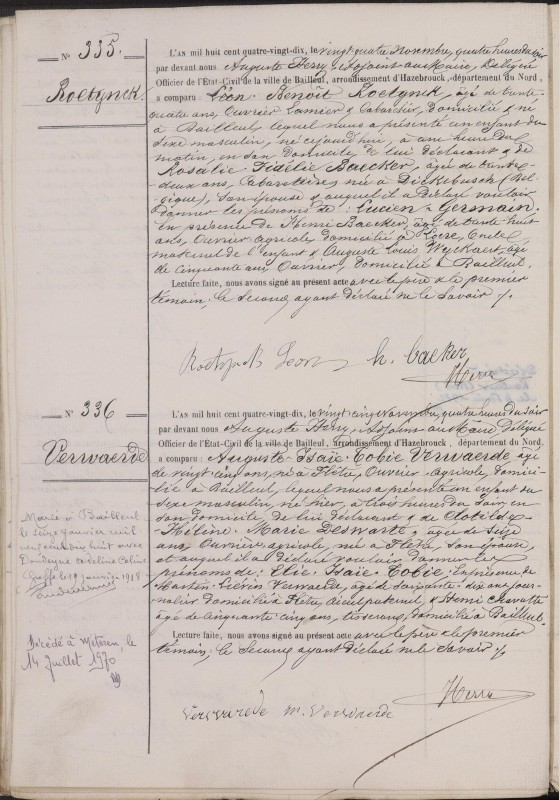 N° 335.
Roetynck.
L'AN mil huit cent quatre-vingt-dix, le vingt-quatre Novembre, quatre heures du soir
par devant nous Auguste Hery, Adjoint au Maire, Délégué
Officier de l'État-Civil de la ville de Bailleul, arrondissement d'Hazebrouck, département du Nord,
a comparu Léon Benoît Roetynck, âgé de trente
quatre ans, Ouvrier Lamier & Cabaretier, domicilié & né
à Bailleul, lequel nous a présenté un enfant du
sexe masculin, né cejourd'hui, à une heure du
matin, en son domicile, de lui déclarant & de
Rosalie Fidélie Baecker, âgée de trente-
deux ans, Cabaretière, née à Dickebusch (Bel-
gique), son épouse & auquel il a déclaré vouloir
donner les prénoms de: Lucien-Germain.
En présence de Henri Baecker, âgé de trente huit
ans, Ouvrier agricole, domicilié à Locre, Oncle
maternel de l'enfant & Auguste Louis âgé
de cinquante ans Ouvrier, domicilié à Bailleul.
Lecture faite, nous avons signé au présent acte avec le père & le premier
témoin; le Second ayant déclaré ne le Savoir
Léon h. baeker
N° 336
Verwaerde
L'AN mil huit cent quatre-vingt-dix, le vingt cinq Novembre, quatre heures du soir
par devant nous Auguste Hery, Adjoint au Maire Délégué
Officier de l'État-Civil de la ville de Bailleul, arrondissement d'Hazebrouck, département du Nord.
a comparu: Auguste-Isaïe-Tobie Verwaerde âgé
de vingt cinq ans, né à Flêtre, Ouvrier-agricole, domici-
lié à Bailleul, lequel nous a présenté un enfant du
sexe masculin, né hier, à trois heures du soir en
son domicile, de lui déclarant & de Clotilde-
Hélène-Marie Deswarte, âgée de seize
ans, Ouvrière agricole, née à Flêtre, son épouse
et auquel il a déclaré vouloir donner les
prénoms de: Elie-Isaïe-Tobie. En présence de
Martin-Liévin Verwaerde, âgé de soixante-dix ans, jour-
nalier domicilié à Flêtre, aïeul paternel & Henri
âgé de cinquante cinq ans, tisserand, domicilié à Bailleul.
Lecture faite, nous avons signé au présent acte avec le père & le premier
témoin; le Second ayant déclaré ne le Savoir
Verwaerde m. Verwaerde
Marié à Bailleul
le seize janvier mil
neuf cent dix huit avec
Céline
le 19 janvier 1918
Décédé à Méteren, le
14 Juillet 1970